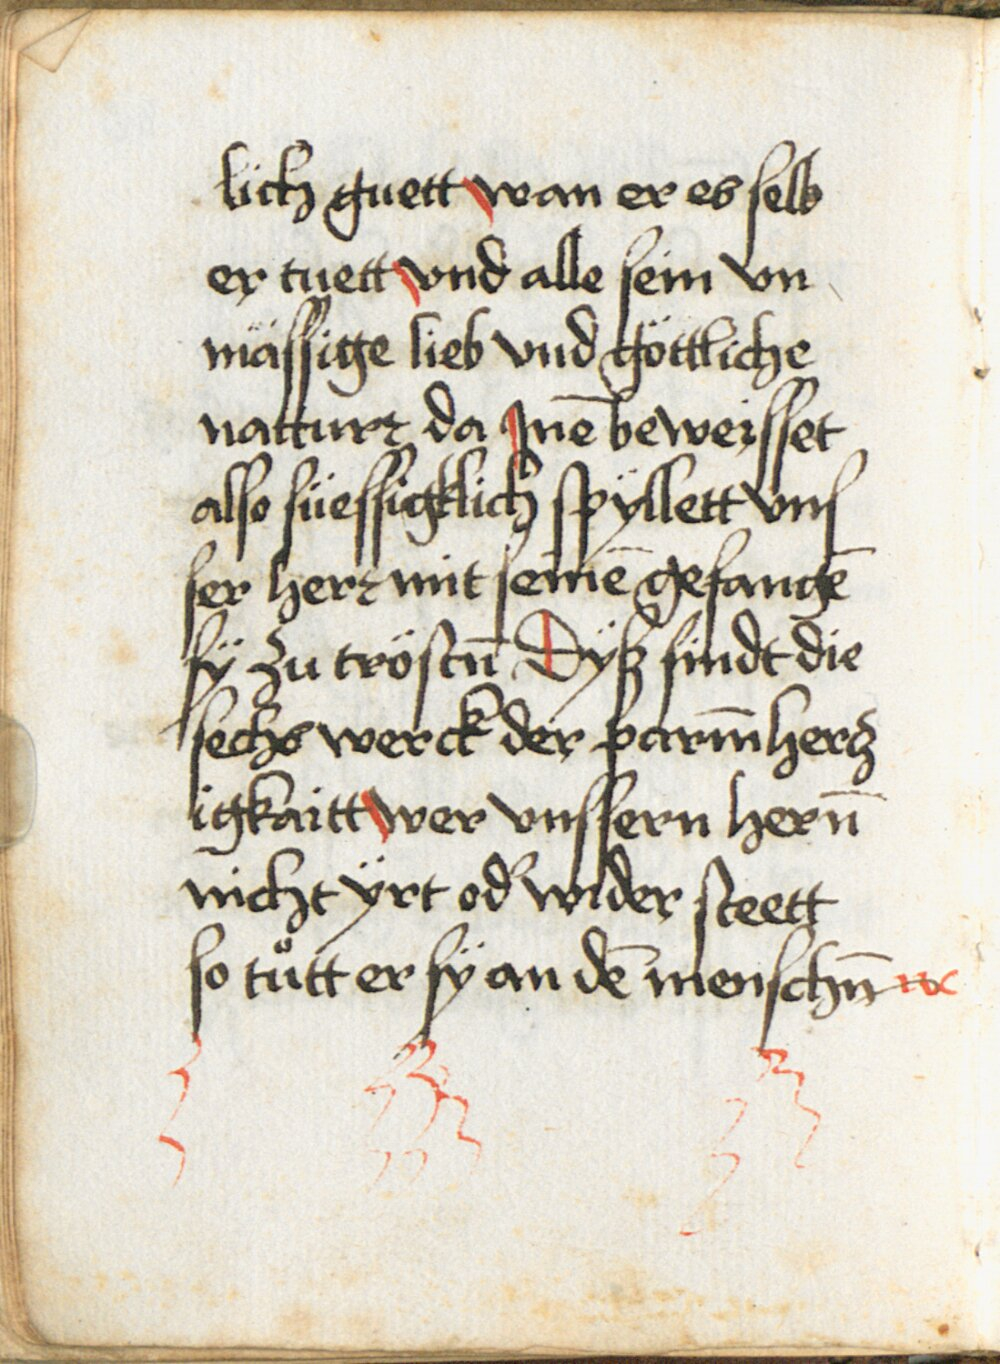 lich guett wan er es selb
er tuett vnd alle sein vn
mässige lieb vnd göttliche
natturr da Jnē beweisset
also süessigklich spyllett vns
ser herr mit seinē gefangē
sÿ zu tröstn̄ Dÿß sindt die
sechs werck der parm̄hertz
igkaitt wer vnssern hern̄
nicht ÿrt od' wider steett
so tůtt er sÿ an dē menschn̄